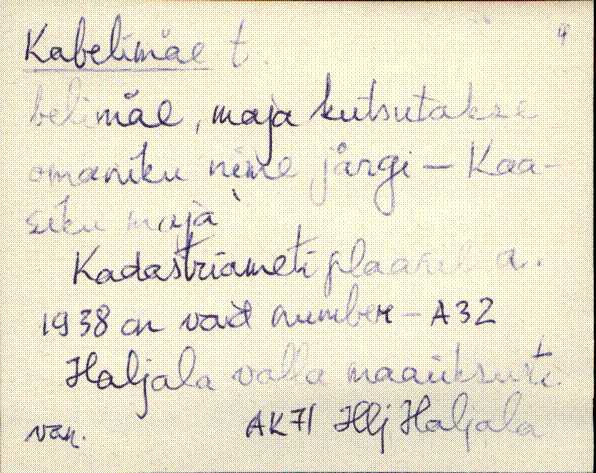 Kabelimäe t. 4
belimäe, maja kutsutakse
omaniku nime järgi – Kaa-
siku maja
Kadastriameti plaanil a.
1938 on vaid number – A32
Haljala valla maaüksuste
van. AK71 Hlj Haljala